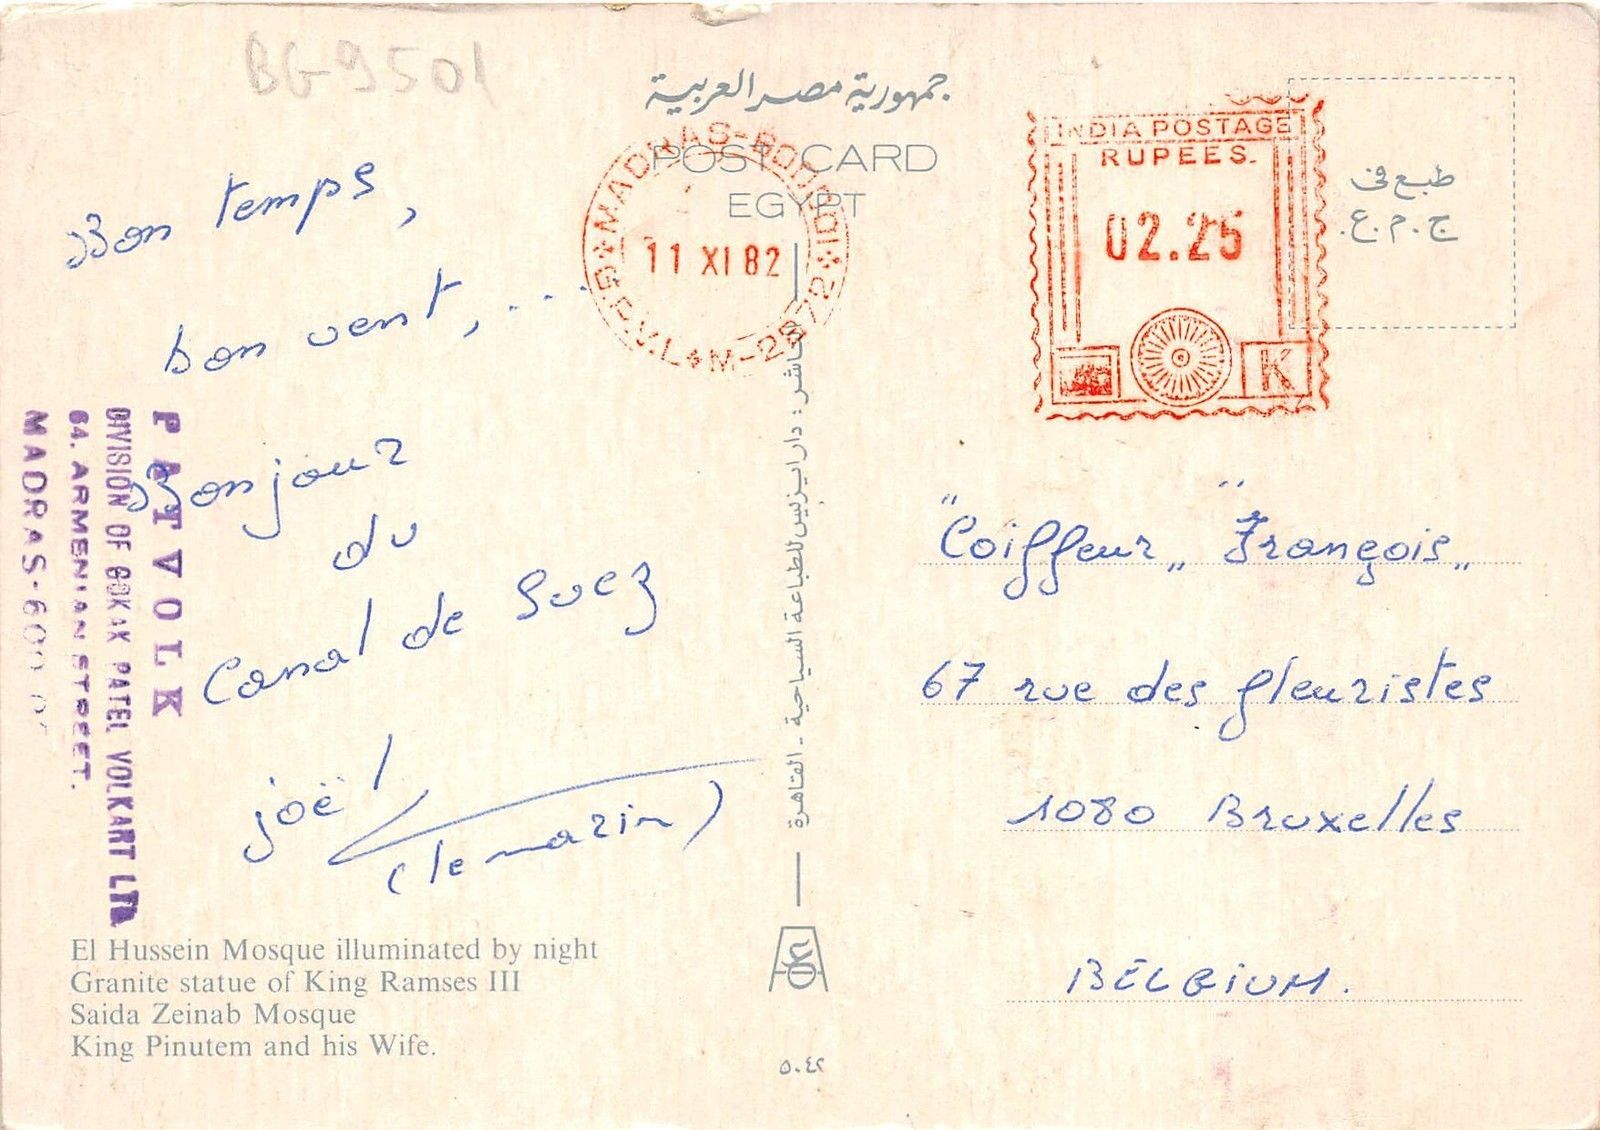 BG-9501
جمهورية مصر العربية
POST CARD
EGYPT
MADRAS-
11 XI 82
INDIA POSTAGE
RUPEES.
02.25
K
طبع في
ج.م.ع.
Bon temps,
bon vent, ...
Bonjour
du
Canal de Suez
joël
(le marin)
PATVOLK
DIVISION OF GOKAK PATEL VOLKART LTD
64. ARMENIAN STREET.
MADRAS-600
الناشر: دار ايزيس للطباعة السياحية - القاهرة
"Coiffeur" "François"
67 rue des fleuristes
1080 Bruxelles
BELGIUM.
El Hussein Mosque illuminated by night
Granite statue of King Ramses III
Saida Zeinab Mosque
King Pinutem and his Wife.
٥٠٤٢